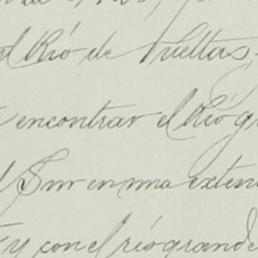 el Río de Vueltas,
encontrar el Río g
Sur en una exten
y con el río grande